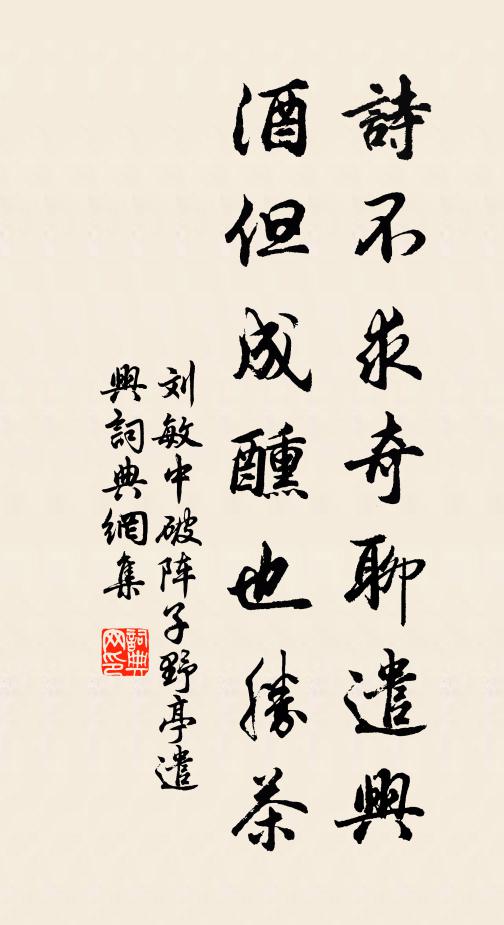 詩不求奇聊遣興
酒但成醺也勝茶
刘敏中破阵子野亭遣
興詞典網集
詞典
网印